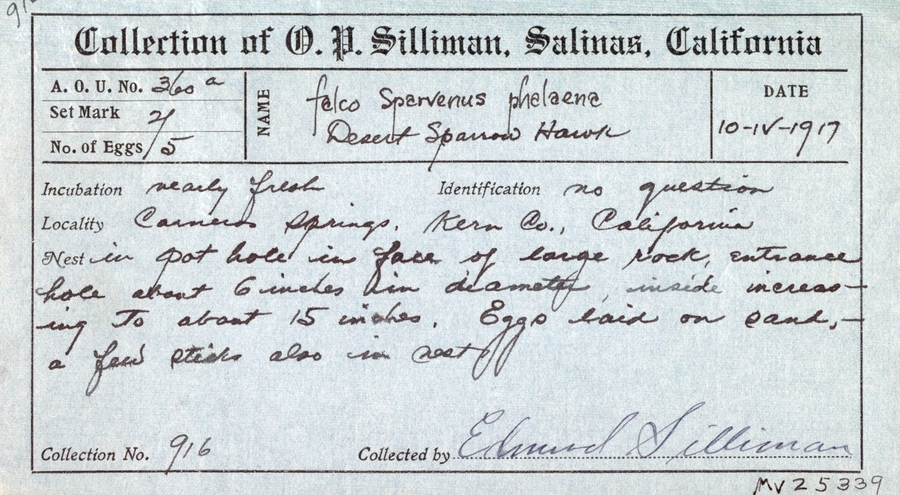 Collection of O. P. Silliman, Salinas, California
A. O. U. No. 360 a
Set Mark 2/
No. of Eggs /5
NAME
falco Sparvenus phelaena
Desert Sparrow Hawk
DATE
10-IV-1917
Incubation nearly fresh Identification no question
Locality Carneros Springs. Kern Co., California
Nest in pot hole in face of large rock, entrance
hole about 6 inches in diameter, inside increas-
ing To about 15 inches. Eggs laid on sand,-
a few sticks also in nest
Collection No. 916 Collected by Edmund Silliman
MV25339